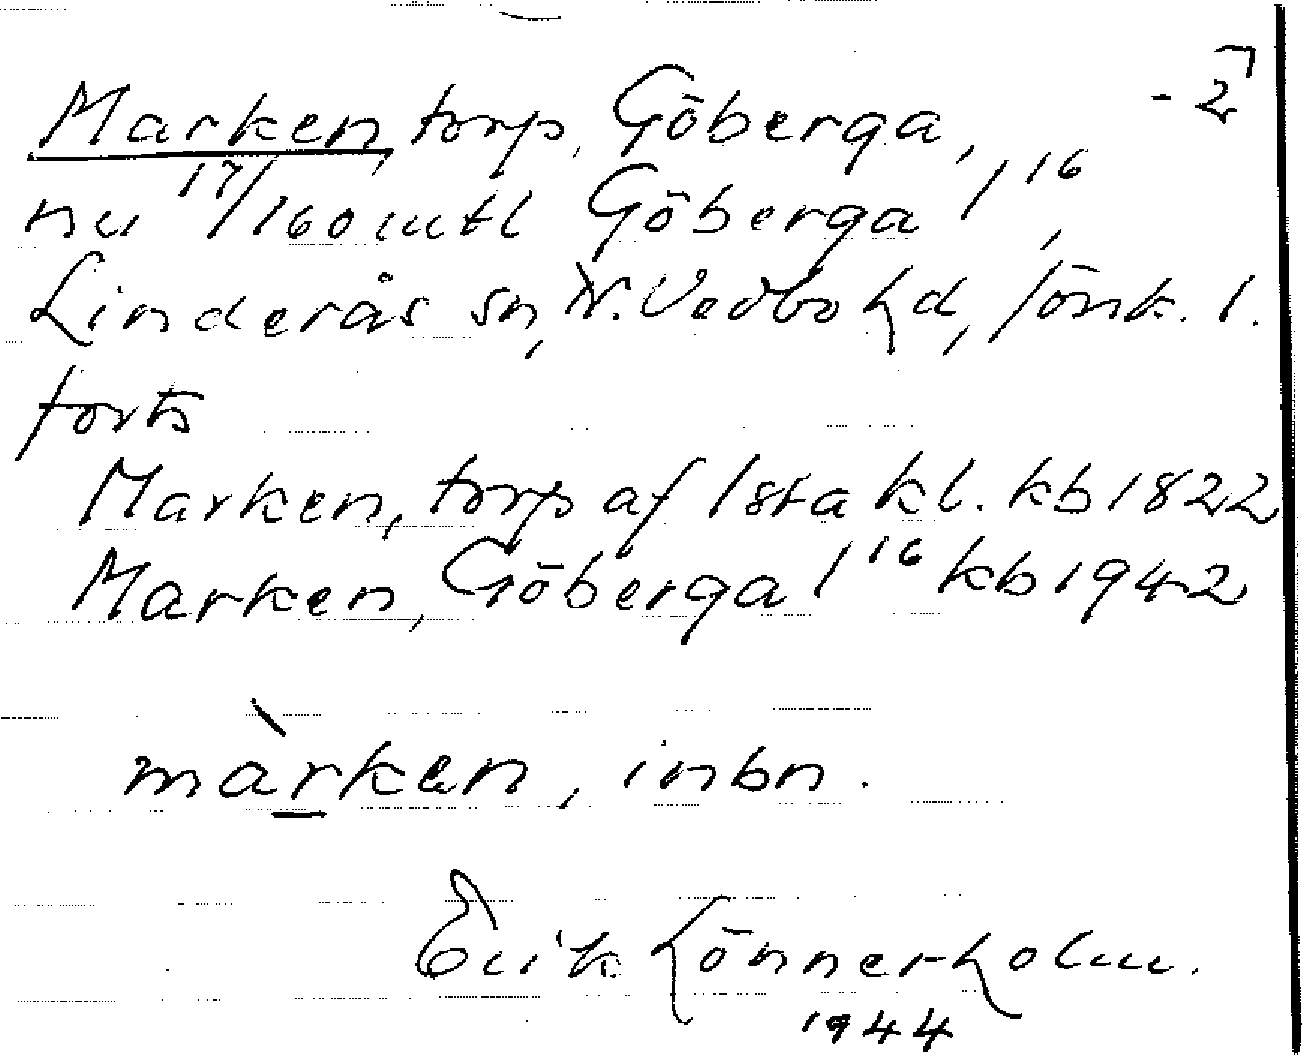 Marken, torp, Göberga, - 2
nu 17/160 mtl Göberga 1 16,
Linderås sn, N. Vedbo hd, Jönk. l.
forts
Marken, torp af 1sta kl. kb 1822
Marken, Göberga 1 16 kb 1942
màrken, inbn.
Erik Lönnerholm.
1944